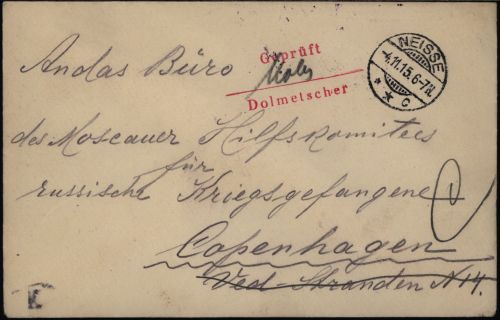 Geprüft
Dolmetscher
NEISSE
4.11.15.6-7N.
* * c
An das Büro
des Moscauer Hilfskomitees
für
russische Kriegsgefangene
Copenhagen
Ved-Stranden N 14.